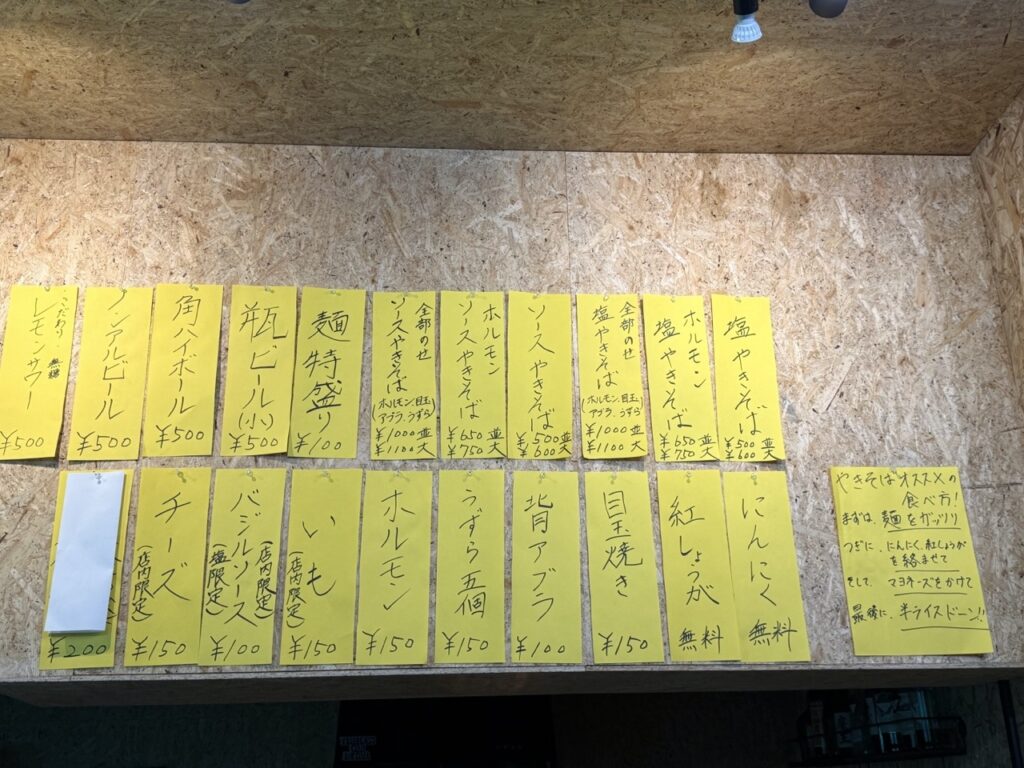 塩やきそば
¥500 並
¥600 大
ホルモン
塩やきそば
¥650 並
¥750 大
全部のせ
塩やきそば
(ホルモン、目玉
アブラ、うずら)
¥1000 並
¥1100 大
ソースやきそば
¥500 並
¥600 大
ホルモン
ソースやきそば
¥650 並
¥750 大
全部のせ
ソースやきそば
(ホルモン、目玉
アブラ、うずら)
¥1000 並
¥1100 大
麺特盛り
¥100
瓶ビール(小)
¥500
角ハイボール
¥500
ノンアルビール
¥500
こだわり 無糖
レモンサワー
¥500
にんにく
無料
紅しょうが
無料
目玉焼き
¥150
背アブラ
¥100
うずら五個
¥150
ホルモン
¥150
いも
(店内限定)
¥150
(店内限定)
バジルソース
(塩限定)
¥100
チーズ
(店内限定)
¥150
¥200
やきそばオススメの
食べ方!
まずは、麺をガッツリ
つぎに、にんにく、紅しょうが
を絡ませて
そして、マヨネーズをかけて
最後に、半ライスドーン!!